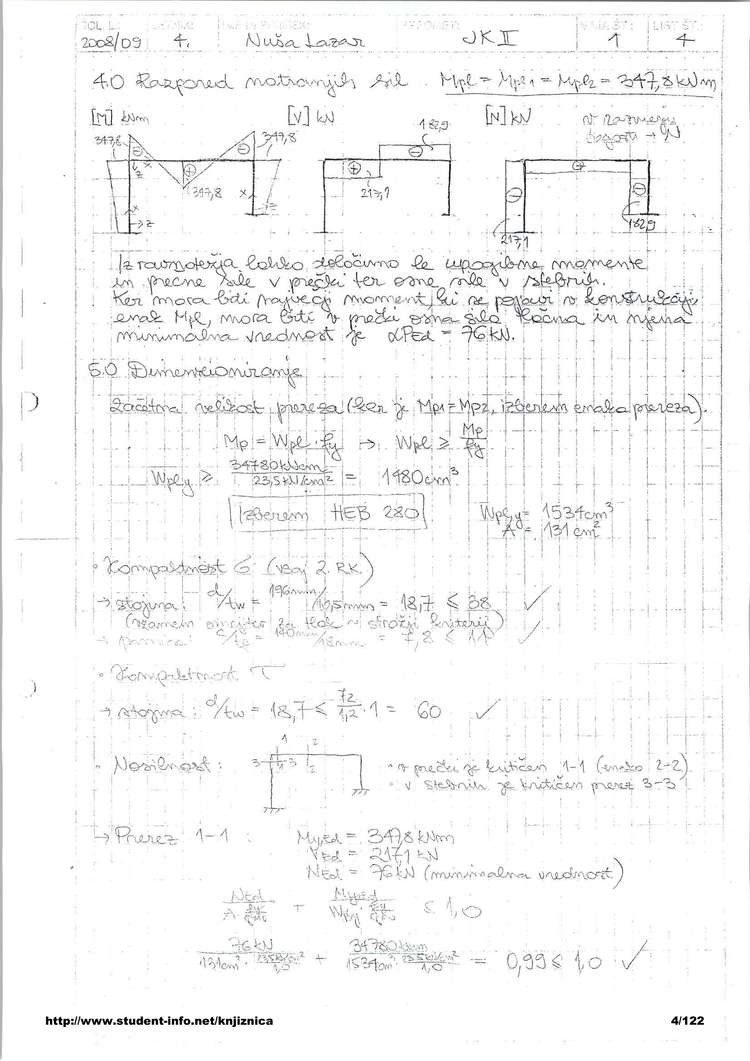 2008/09 4. Nuša Lazar JK II 1 4
4.0 Razpored notranjih sil Mpl = Mpl1 = Mpl2 = 347,8 kNm
[M] kNm [V] kN [N] kN
v razmerju togosti → N
347,8 347,8 182,9
347,8 217,1
217,1 182,9
Iz ravnotežja lahko določimo le upogibne momente
in prečne sile v prečki ter osne sile v stebrih.
Ker mora biti največji moment, ki se pojavi v konstrukciji
enak Mpl, mora biti v prečki osna sila tlačna in njena
minimalna vrednost je αPEd = 76 kN.
5.0 Dimenzioniranje
Začetna velikost prereza (ker je Mp1 = Mp2, izberem enaka prereza).
Mp = Wpl · fy → Wpl ≥ Mp/fy
Wply ≥ 34780 kNcm / 23,5 kN/cm² = 1480 cm³
Izberem HEB 280
Wply = 1534 cm³
A = 131 cm²
• Kompaktnost σ (vsaj 2. RK.)
→ stojina: d/tw = 196mm/10,5mm = 18,7 ≤ 38 ✓
(vzamem omejitev za tlak ~ strožji kriterij)
→ pasnica: c/tf = 140mm/18mm = 7,8 ≤ 11 ✓
• Kompaktnost τ
→ stojina: d/tw = 18,7 ≤ 72/1,2 · 1 = 60 ✓
• Nosilnost: 1 2
3 3 1 2
• v prečki je kritičen 1-1 (enako 2-2)
• v stebrih je kritičen prerez 3-3
→ Prerez 1-1: My,Ed = 347,8 kNm
VEd = 217,1 kN
NEd = 76 kN (minimalna vrednost)
NEd / A fy/γM0 + My,Ed / Wply fy/γM0 ≤ 1,0
76 kN / 131 cm² · 23,5 kN/cm²/1,0 + 34780 kNcm / 1534 cm³ · 23,5 kN/cm²/1,0 = 0,99 ≤ 1,0 ✓
http://www.student-info.net/knjiznica 4/122